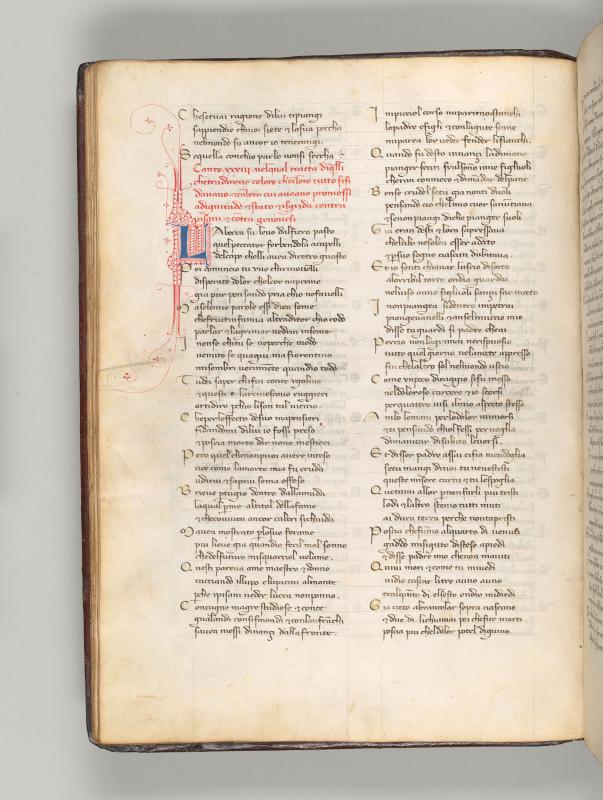 C hesetuai ragione dilui tipiangi
sappiendio chiuoi siete & lasua peccha
nelmondo su ancor io tenecangi.
S equella conchio parlo nonsi seccha
Canto xxxiii nelqual tracta diqlli
chetradirono coloro cheiloro tutto sifi
dauano & coloro cui aueano promossi
adignitade & stato & isgrida contra
ipisani & cotra genouesi
L A bocca su leuo dalfiero pasto
quelpeccator forbendola acapelli
delcapo chelli auea diretro guasto
P oi comincio tu vuo chirinouelli
disperato dolor chelcor mipreme
gia pur pensando pria chio nefauelli
M aselemie parole esser dien seme
chefructi infamia altraditor chio rodo
parlar & lagrimar vedrai insieme
I nonso chi tu se neperche modo
venuto se quaggiu ma fiorentino
misembri veramente quandio todo
T udei saper chifui conte vgolino
& questi o larciuescouo ruggieri
ortidiro pchio ison tal vicino
C heperleffecto desuo mapensieri
fidandomi dilui io fossi preso
& poscia morto dir none mestieri
P ero quelchenonpuoi auere inteso
cioe come lamorte mia fu cruda
vdirai & saprai sema offeso
B rieue ptugio dentro dallamuda
laqual pme altitol dellafame
& checonuien ancor caltri sichiuda
M auea mostrato plosuo forame
piu lieue gia quandio fecil mal sonno
chedelfuturo misquarciol velame
Q uesti pareua ame maestro & donno
cacciando illupo elupicini almonte
pche ipisani veder lucca nonponno.
C oncagne magre studiose & conte
gualandi consismondi & conlanfranchi
sauea messi dinanzi dalla fronte.
I npicciol corso miparieno stanchi
lopadre efigli & conlagute scane
miparea lor veder fender lifianchi.
Q uando fu desto innanzi ladimane
pianger senti fralsonno imie figliuoli
cheran conmeco & dimandar delpane
B ense crudel setu gia nonti duoli
pensando cio chelmio cuor sanuntiaua
& senonpiangi diche pianger suoli
G ia eran desti & lora sapressaua
chelcibo nesolea esser addotto
& psuo sogno ciascun dubitaua.
Et io senti chiauar luscio disotto
alorribil torre ondio guardai
neluiso amie figliuoli sanza far motto
I nonpiangea sidentro impetrai
piangeuanelli & anselmuccio mio
disse tu guardi si padre cheai
Percio nonlagrimai nerispuosio
tutto quelgiorno nelanocte appresso
fin chelaltro sol nelmondo uscio
C ome vnpoco diraggio sifu messo
neldoloroso carcere & io scorsi
perquattro uisi ilmio aspecto stesso
A mbo leman perlodolor mimorsi
& ei pensando chiolfessi per voglia
dimanicar disubito leuorsi.
Et disser padre assai cifia mendoglia
setu mangi dinoi tu neuestisti
queste misere carni & tu lespoglia
Q uetami allor pnonfarli piu tristi
lodi & laltro stemo tutti muti
ai dura terra perche nontapristi
P oscia chefumo alquarto di venuti
gaddo misigitto disteso apiedi
& disse padre mio chenon maiuti
Q uiui mori & come tu miuedi
uidio cascar litre auno auno
tralquinto di elsesto ondio midiedi
G ia cieco abrancolar sopra ciascuno
& due di lichiamai poi chefur morti
poscia piu cheldolor potel digiuno.